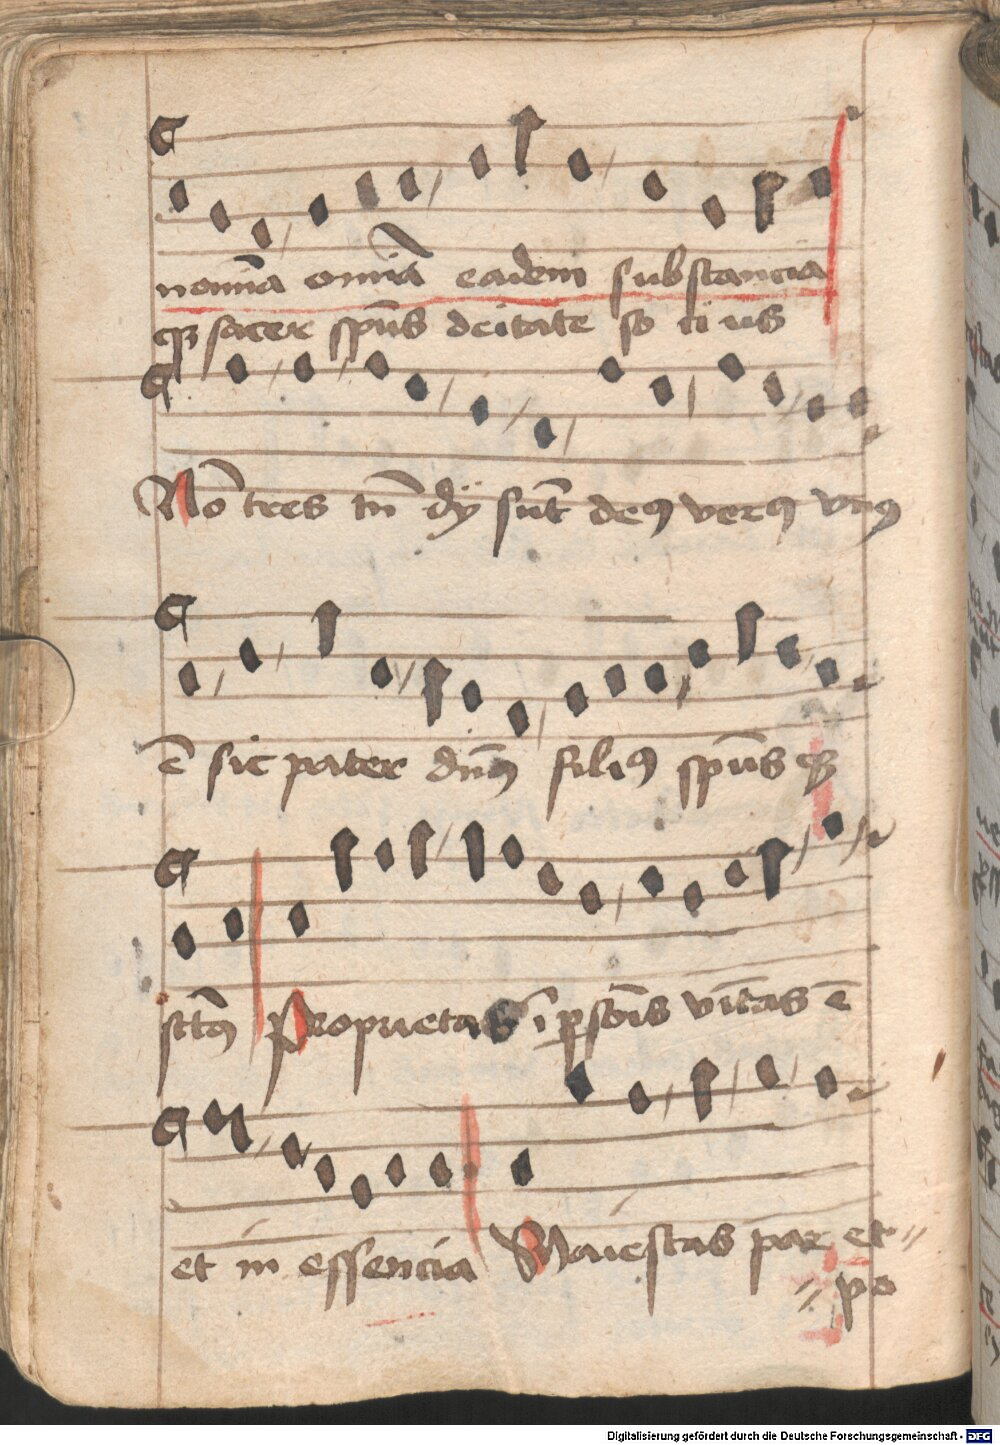 nomīa omīa eadem substancia
qȝ sacer spūs deitate so ci us
Nō tres tn̄ dÿ sūt deꝰ verꝰ vnꝰ
ē sic pater dn̄s filiꝰ spūs qȝ
sctūs Proprietas ī ꝑsōis vnitas ē
et in essencia Maiestas par et //
// po
Digitalisierung gefördert durch die Deutsche Forschungsgemeinschaft - DFG